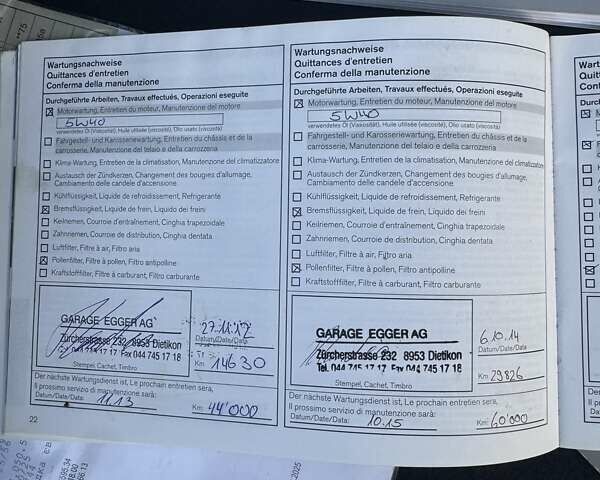 Wartungsnachweise
Quittances d'entretien
Conferma della manutenzione
Durchgeführte Arbeiten, Travaux effectués, Operazioni eseguite
Motorwartung, Entretien du moteur, Manutenzione del motore
5W40
verwendetes Öl (Viskosität), Huile utilisée (viscosité), Olio usato (viscosità)
Fahrgestell- und Karosseriewartung, Entretien du châssis et de la
carrosserie, Manutenzione del telaio e della carrozzeria
Klima-Wartung, Entretien de la climatisation, Manutenzione del climatizzatore
Austausch der Zündkerzen, Changement des bougies d'allumage,
Cambiamento delle candele d'accensione
Kühlflüssigkeit, Liquide de refroidissement, Refrigerante
Bremsflüssigkeit, Liquide de frein, Liquido dei freini
Keilriemen, Courroie d'entraînement, Cinghia trapezoidale
Zahnriemen, Courroie de distribution, Cinghia dentata
Luftfilter, Filtre à air, Filtro aria
Pollenfilter, Filtre à pollen, Filtro antipolline
Kraftstofffilter, Filtre à carburant, Filtro carburante
GARAGE EGGER AG
Zürcherstrasse 232 8953 Dietikon
Fax 044 745 17 18
Datum/Date/Data
Km 14630
Stempel, Cachet, Timbro
Der nächste Wartungsdienst ist, Le prochain entretien sera,
Il prossimo servizio di manutenzione sarà:
Datum/Date/Data: 11.13 Km: 44'000
22
Wartungsnachweise
Quittances d'entretien
Conferma della manutenzione
Durchgeführte Arbeiten, Travaux effectués, Operazioni eseguite
Motorwartung, Entretien du moteur, Manutenzione del motore
5W40
verwendetes Öl (Viskosität), Huile utilisée (viscosité), Olio usato (viscosità)
Fahrgestell- und Karosseriewartung, Entretien du châssis et de la
carrosserie, Manutenzione del telaio e della carrozzeria
Klima-Wartung, Entretien de la climatisation, Manutenzione del climatizzatore
Austausch der Zündkerzen, Changement des bougies d'allumage,
Cambiamento delle candele d'accensione
Kühlflüssigkeit, Liquide de refroidissement, Refrigerante
Bremsflüssigkeit, Liquide de frein, Liquido dei freini
Keilriemen, Courroie d'entraînement, Cinghia trapezoidale
Zahnriemen, Courroie de distribution, Cinghia dentata
Luftfilter, Filtre à air, Filtro aria
Pollenfilter, Filtre à pollen, Filtro antipolline
Kraftstofffilter, Filtre à carburant, Filtro carburante
GARAGE EGGER AG
Zürcherstrasse 232 8953 Dietikon
Tel. 044 745 17 17 Fax 044 745 17 18
6.10.14
Datum/Date/Data
Km 29826
Stempel, Cachet, Timbro
Der nächste Wartungsdienst ist, Le prochain entretien sera,
Il prossimo servizio di manutenzione sarà:
Datum/Date/Data: 10.15 Km: 60'000